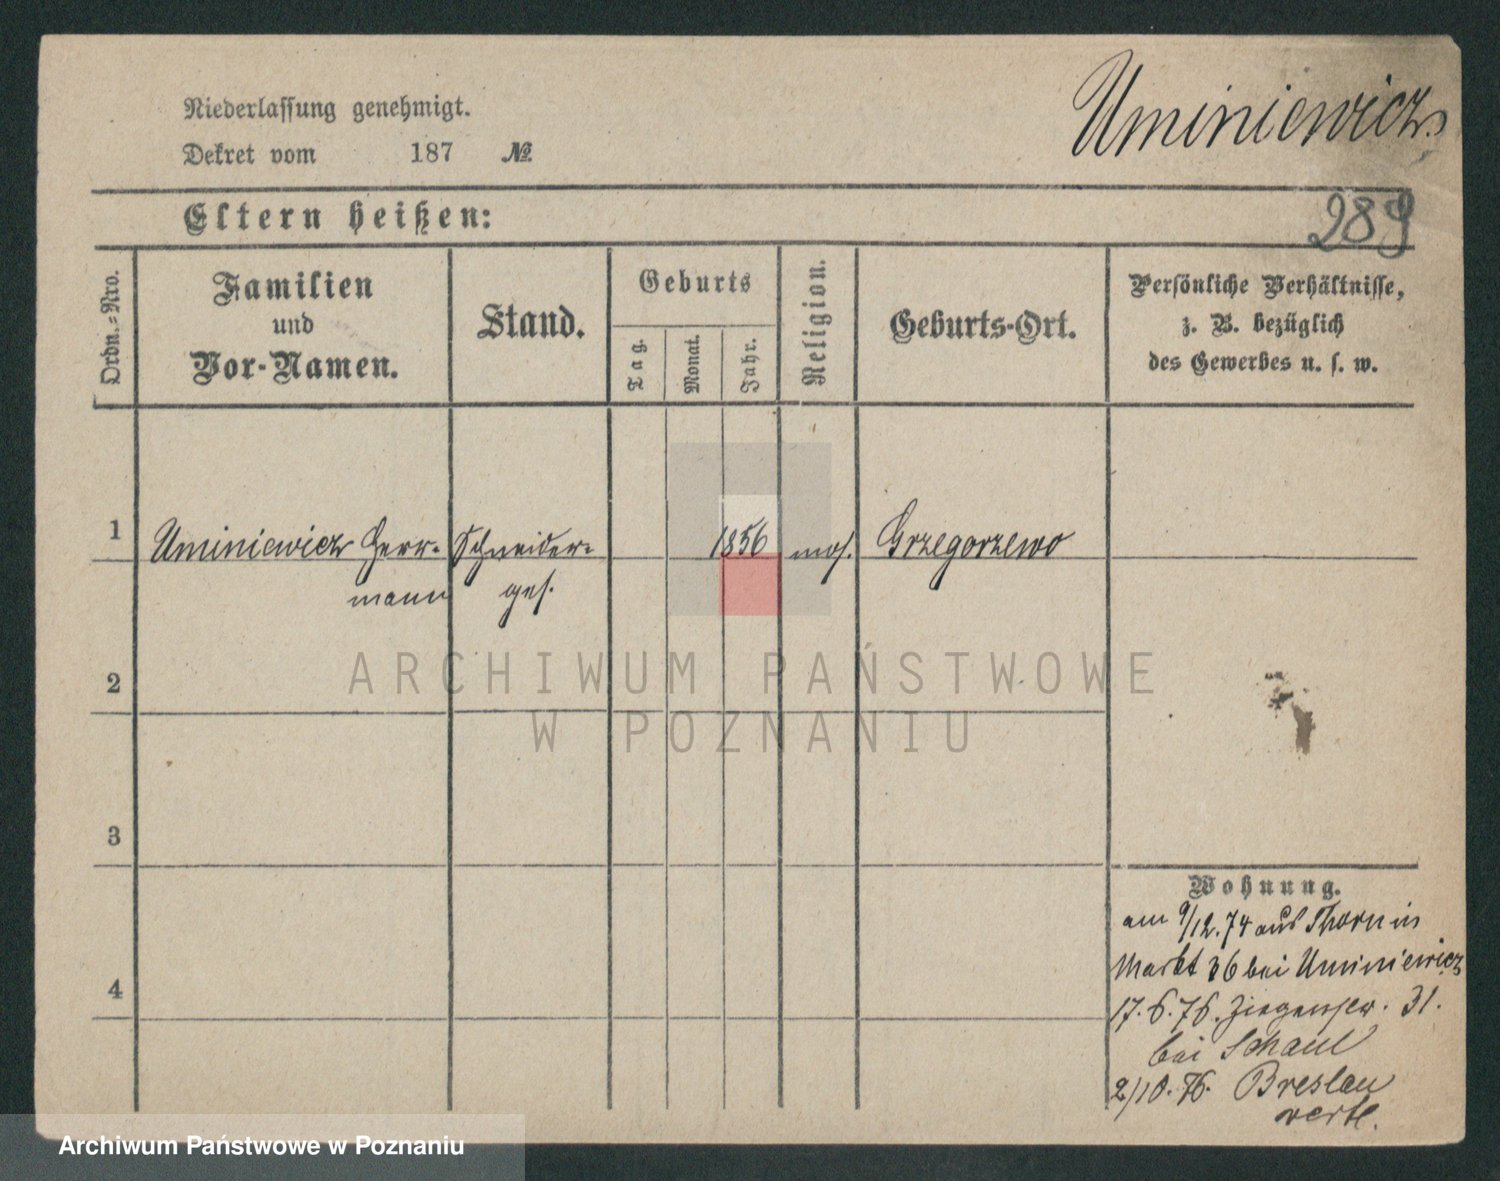 Niederlassung genehmigt.
Uminiewicz
Dekret vom 187 №
Eltern heißen:
289
Ordn.-Nro.
Familien
und
Vor-Namen.
Stand.
Geburts
Tag.
Monat.
Jahr.
Religion.
Geburts-Ort.
Persönliche Verhältnisse,
z. B. bezüglich
des Gewerbes u. s. w.
1 Uminiewicz Herr- Schneider- 1856 mos. Grzegorzewo
mann ges.
2
3
4
ARCHIWUM PAŃSTWOWE
W POZNANIU
Wohnung.
am 9/12.74 aus Thorn in
Markt 36 bei Uminiewicz
17.6.76. Ziegenstr. 31.
bei Schaul
2/10.76. Breslau
verk.
Archiwum Państwowe w Poznaniu